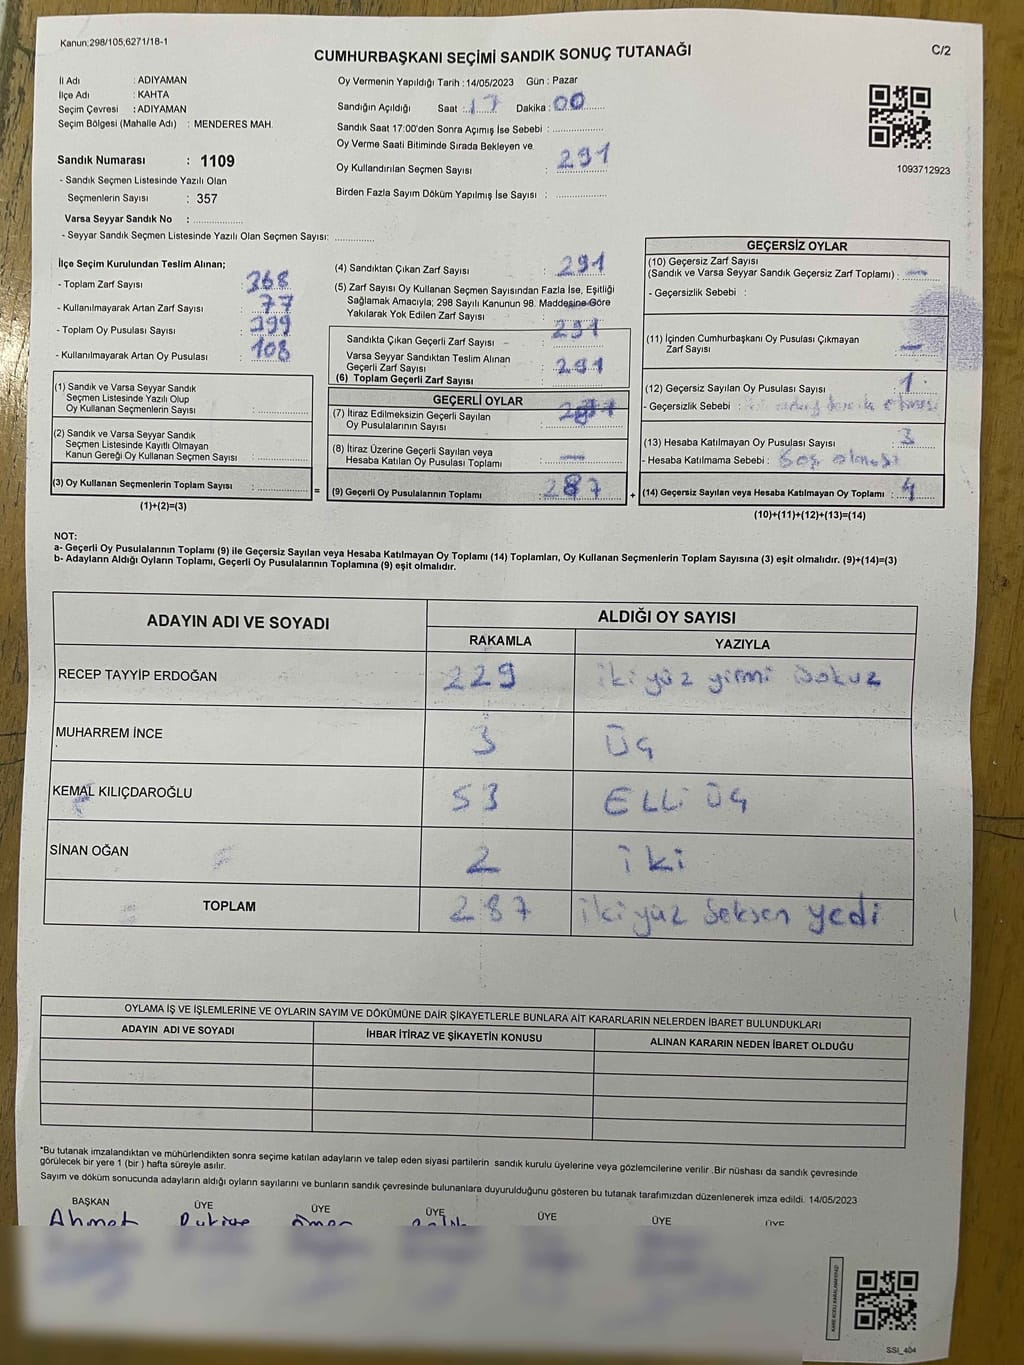 Kanun;298/105,6271/18-1
C/2
CUMHURBAŞKANI SEÇİMİ SANDIK SONUÇ TUTANAĞI
İl Adı : ADIYAMAN
İlçe Adı : KAHTA
Seçim Çevresi : ADIYAMAN
Seçim Bölgesi (Mahalle Adı) : MENDERES MAH.
Sandık Numarası : 1109
- Sandık Seçmen Listesinde Yazılı Olan
Seçmenlerin Sayısı : 357
Varsa Seyyar Sandık No : ..................
- Seyyar Sandık Seçmen Listesinde Yazılı Olan Seçmen Sayısı: ..............
Oy Vermenin Yapıldığı Tarih : 14/05/2023 Gün : Pazar
Sandığın Açıldığı Saat : 17 Dakika : 00
Sandık Saat 17:00'den Sonra Açımış İse Sebebi : ..................
Oy Verme Saati Bitiminde Sırada Bekleyen ve
Oy Kullandırılan Seçmen Sayısı : 291
Birden Fazla Sayım Döküm Yapılmış İse Sayısı : ..................
1093712923
İlçe Seçim Kurulundan Teslim Alınan;
- Toplam Zarf Sayısı : 368
- Kullanılmayarak Artan Zarf Sayısı : 77
- Toplam Oy Pusulası Sayısı : 399
- Kullanılmayarak Artan Oy Pusulası : 108
(1) Sandık ve Varsa Seyyar Sandık
Seçmen Listesinde Yazılı Olup
Oy Kullanan Seçmenlerin Sayısı : ..................
(2) Sandık ve Varsa Seyyar Sandık
Seçmen Listesinde Kayıtlı Olmayan
Kanun Gereği Oy Kullanan Seçmen Sayısı : ..................
(3) Oy Kullanan Seçmenlerin Toplam Sayısı : ..................
(1)+(2)=(3)
=
(4) Sandıktan Çıkan Zarf Sayısı : 291
(5) Zarf Sayısı Oy Kullanan Seçmen Sayısından Fazla İse, Eşitliği
Sağlamak Amacıyla; 298 Sayılı Kanunun 98. Maddesine Göre
Yakılarak Yok Edilen Zarf Sayısı :
Sandıkta Çıkan Geçerli Zarf Sayısı : 291
Varsa Seyyar Sandıktan Teslim Alınan
Geçerli Zarf Sayısı : 291
(6) Toplam Geçerli Zarf Sayısı :
GEÇERLİ OYLAR
(7) İtiraz Edilmeksizin Geçerli Sayılan
Oy Pusulalarının Sayısı :
(8) İtiraz Üzerine Geçerli Sayılan veya
Hesaba Katılan Oy Pusulası Toplamı : —
(9) Geçerli Oy Pusulalarının Toplamı : 287
+
GEÇERSİZ OYLAR
(10) Geçersiz Zarf Sayısı
(Sandık ve Varsa Seyyar Sandık Geçersiz Zarf Toplamı) : —
- Geçersizlik Sebebi :
(11) İçinden Cumhurbaşkanı Oy Pusulası Çıkmayan
Zarf Sayısı : —
(12) Geçersiz Sayılan Oy Pusulası Sayısı : 1
- Geçersizlik Sebebi : olması
(13) Hesaba Katılmayan Oy Pusulası Sayısı : 3
- Hesaba Katılmama Sebebi : Boş olması
(14) Geçersiz Sayılan veya Hesaba Katılmayan Oy Toplamı : 4
(10)+(11)+(12)+(13)=(14)
NOT:
a- Geçerli Oy Pusulalarının Toplamı (9) ile Geçersiz Sayılan veya Hesaba Katılmayan Oy Toplamı (14) Toplamları, Oy Kullanan Seçmenlerin Toplam Sayısına (3) eşit olmalıdır. (9)+(14)=(3)
b- Adayların Aldığı Oyların Toplamı, Geçerli Oy Pusulalarının Toplamına (9) eşit olmalıdır.
ADAYIN ADI VE SOYADI
ALDIĞI OY SAYISI
RAKAMLA YAZIYLA
RECEP TAYYİP ERDOĞAN 229 iki yüz yirmi dokuz
MUHARREM İNCE 3 ÜÇ
KEMAL KILIÇDAROĞLU 53 ELLİ ÜÇ
SİNAN OĞAN 2 iki
TOPLAM 287 iki yüz Seksen yedi
OYLAMA İŞ VE İŞLEMLERİNE VE OYLARIN SAYIM VE DÖKÜMÜNE DAİR ŞİKAYETLERLE BUNLARA AİT KARARLARIN NELERDEN İBARET BULUNDUKLARI
ADAYIN ADI VE SOYADI İHBAR İTİRAZ VE ŞİKAYETİN KONUSU ALINAN KARARIN NEDEN İBARET OLDUĞU
*Bu tutanak imzalandıktan ve mühürlendikten sonra seçime katılan adayların ve talep eden siyasi partilerin sandık kurulu üyelerine veya gözlemcilerine verilir .Bir nüshası da sandık çevresinde
görülecek bir yere 1 (bir ) hafta süreyle asılır.
Sayım ve döküm sonucunda adayların aldığı oyların sayılarını ve bunların sandık çevresinde bulunanlara duyurulduğunu gösteren bu tutanak tarafımızdan düzenlenerek imza edildi. 14/05/2023
BAŞKAN ÜYE ÜYE ÜYE ÜYE ÜYE ÜYE
Ahmet
SSI_404